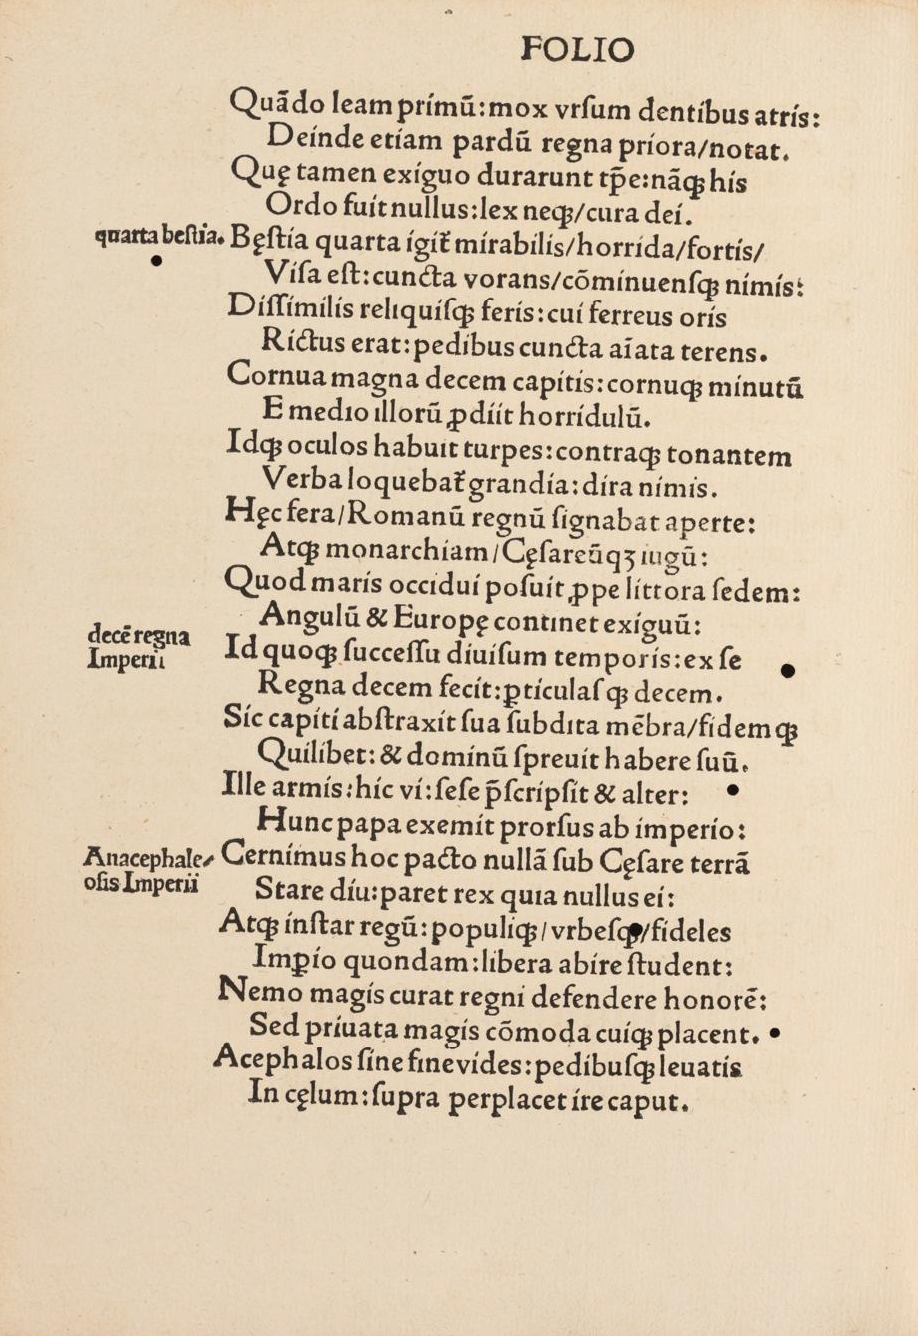 FOLIO
Quãdo leam prímũ: mox vrſum dentíbus atrís:
Deínde etíam pardũ regna príora/notat.
Quę tamen exíguo durarunt tp̄e: nãqꝫ hís
Ordo fuít nullus: lex neqꝫ/cura deí.
quarta beſtia.
Bęſtía quarta ígíť mírabílís/horrída/fortís/
Víſa eſt: cuncta vorans/cõmínuenſqꝫ nímís:
Díſſímílís relıquíſqꝫ ferís: cuí ferreus orís
Ríctus erat: pedíbus cuncta aīata terens.
Cornua magna decem capítís: cornuqꝫ mínutũ
E medıo ıllorũ ꝓdíít horrídulũ.
Idqꝫ oculos habuıt turpes: contraqꝫ tonantem
Verba loquebať grandía: díra nímís.
Hęc fera/Romanũ regnũ ſignabat aperte:
Atqꝫ monarchíam/Cęſareũqꝫ iugũ:
Quod marís occıduí poſuít ꝓpe líttora ſedem:
Angulũ & Europę contınet exíguũ:
decẽ regna
Imperii
Id quoqꝫ ſucceſſu díuíſum temporís: ex ſe
Regna decem fecít: ꝑtículaſqꝫ decem.
Síc capítí abſtraxít ſua ſubdıta mẽbra/fídemqꝫ
Quílíbet: & domínũ ſpreuít habere ſuũ.
Ille armís: híc ví: ſeſe p̄ſcrípſít & alter:
Hunc papa exemít prorſus ab imperío:
Anacephale⸗
oſis Imperii
Cernímus hoc pacto nullã ſub Cęſare terrã
Stare díu: paret rex quıa nullus eí:
Atqꝫ ínſtar regũ: populiqꝫ/vrbeſqꝫ/fídeles
Imꝑío quondam: líbera abíre ſtudent:
Nemo magís curat regní defendere honorẽ:
Sed príuata magís cõmoda cuíqꝫ placent.
Acephalos ſíne fíne vídes: pedíbuſqꝫ leuatís
In cęlum: ſupra perplacet íre caput.